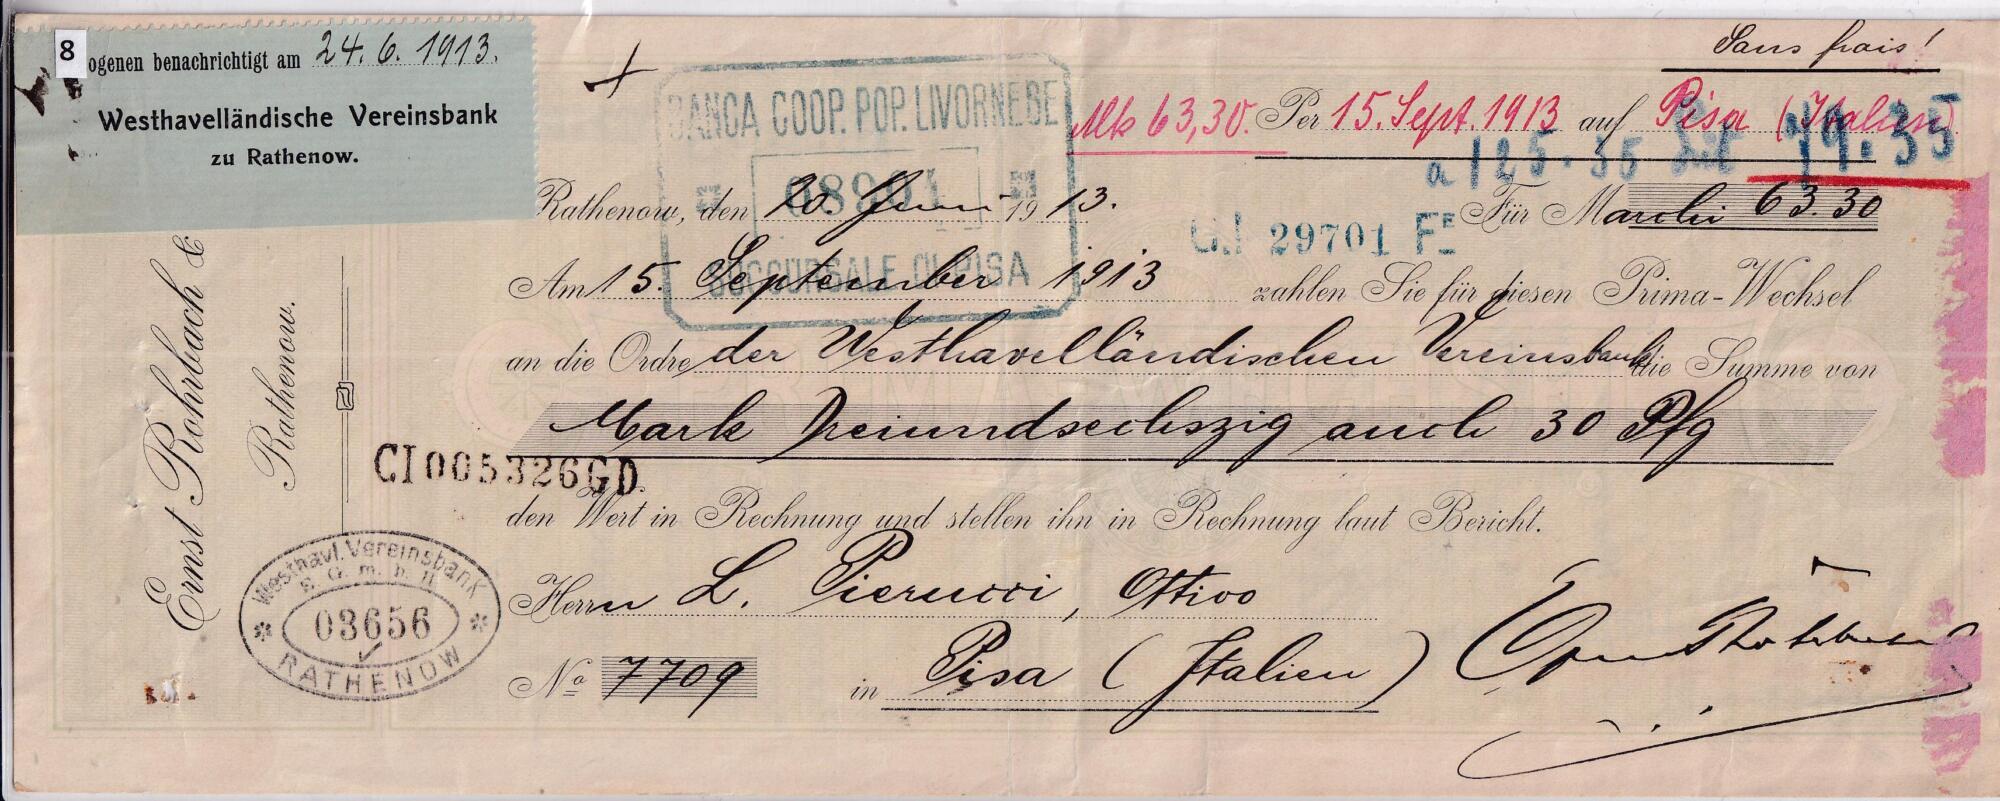 8
ogenen benachrichtigt am 24.6.1913.
Westhavelländische Vereinsbank
zu Rathenow.
Sans frais!
BANCA COOP. POP. LIVORNESE
08901
SUCCURSALE DI PISA
Mk 63,30. Per 15. Sept. 1913 auf Pisa (Italien)
a 125.35 Lit 79.35
Rathenow, den 20. Juni 1913.
Für Marchi 63.30
G.I 29701 FE
Am 15. September 1913 zahlen Sie für diesen Prima-Wechsel
an die Ordre der Westhavelländischen Vereinsbank die Summe von
Mark Dreiundsechszig auch 30 Pfg
CI005326GD
den Wert in Rechnung und stellen ihn in Rechnung laut Bericht.
Herrn L. Pierucci, Ottico
No 7709 in Pisa (Italien)
Ernst Rohrbach
Ernst Rohrbach &
Rathenow.
Westhavl. Vereinsbank
E. G. m. b. H.
03656
RATHENOW